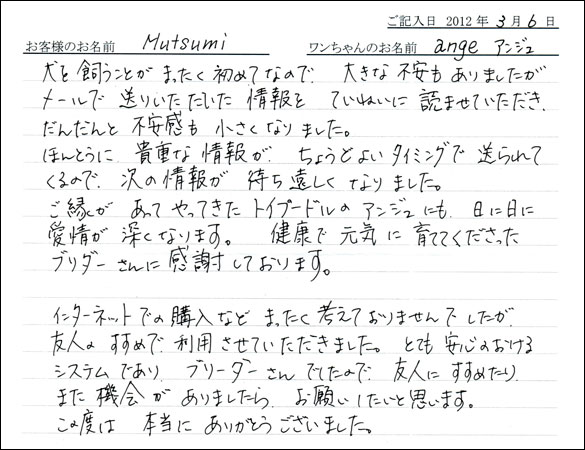 ご記入日 2012 年 3 月 6 日
お客様のお名前 Mutsumi ワンちゃんのお名前 ange アンジュ
犬を飼うことがまったく初めてなので、大きな不安もありましたが
メールで送りいただいた情報を ていねいに読ませていただき、
だんだんと不安感も小さくなりました。
ほんとうに貴重な情報が、ちょうどよいタイミングで送られて
くるので、次の情報が待ち遠しくなりました。
ご縁があってやってきたトイプードルのアンジュにも、日に日に
愛情が深くなります。 健康で元気に育ててくださった
ブリダーさんに感謝しております。
インターネットでの購入などまったく考えておりませんでしたが、
友人のすすめで利用させていただきました。とても安心のおける
システムであり、ブリーダーさんでしたので、友人にすすめたり、
また機会がありましたら、お願いしたいと思います。
この度は 本当にありがとうございました。